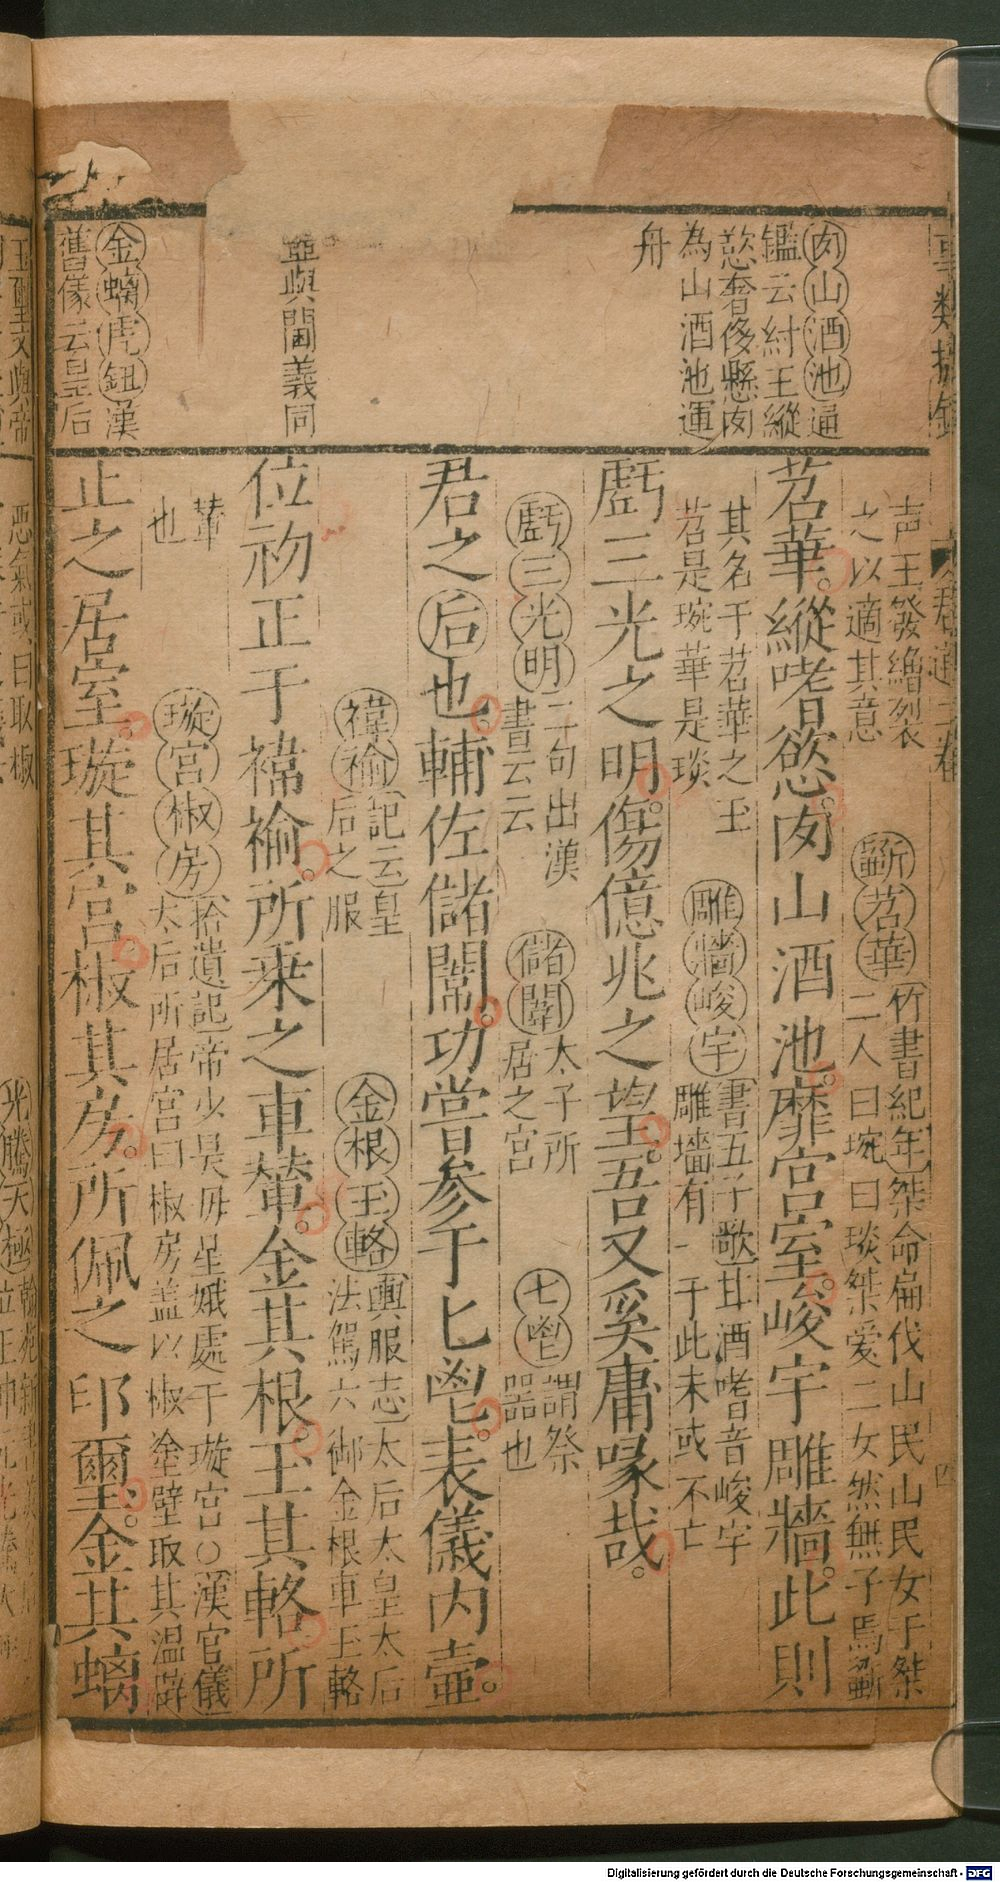 肉山酒池通
鑑云紂王縱
慾奢侈懸肉
為山酒池運
舟
與闔義同
金螭虎鈕漢
舊儀云皇后
声王發繒裂
之以適其意
斵苕華竹書紀年桀命扁伐山民山民女于桀
二人曰琬曰琰桀爱二女然無子焉斵
苕華。縱嗜慾。肉山酒池。靡宫室。峻宇雕牆。此則
其名于苕華之玉
苕是琬華是琰
雕牆峻宇書五子歌甘酒嗜音峻宇
雕墻有一于此未或不亡
虧三光之明。傷億兆之望。吾又奚庸喙哉。
虧三光明二句出漢
書云云
儲闈太子所
居之宫
七鬯謂祭
器也
君之后也。輔佐儲闈。功嘗參于匕鬯。表儀内壼。
褘褕記云皇
后之服
金根玉輅輿服志太后太皇太后
法駕六御金根車玉輅
位初正于褘褕。所乘之車輦。金其根。玉其輅。所
輦
也
璇宫椒房拾遺記帝少昊毋星娥處于璇宫○漢官儀
太后所居宫曰椒房盖以椒塗壁取其温辟
止之居室。璇其宫。椒其房。所佩之印璽。金其螭
惡氣或曰取椒
Digitalisierung gefördert durch die Deutsche Forschungsgemeinschaft - DFG